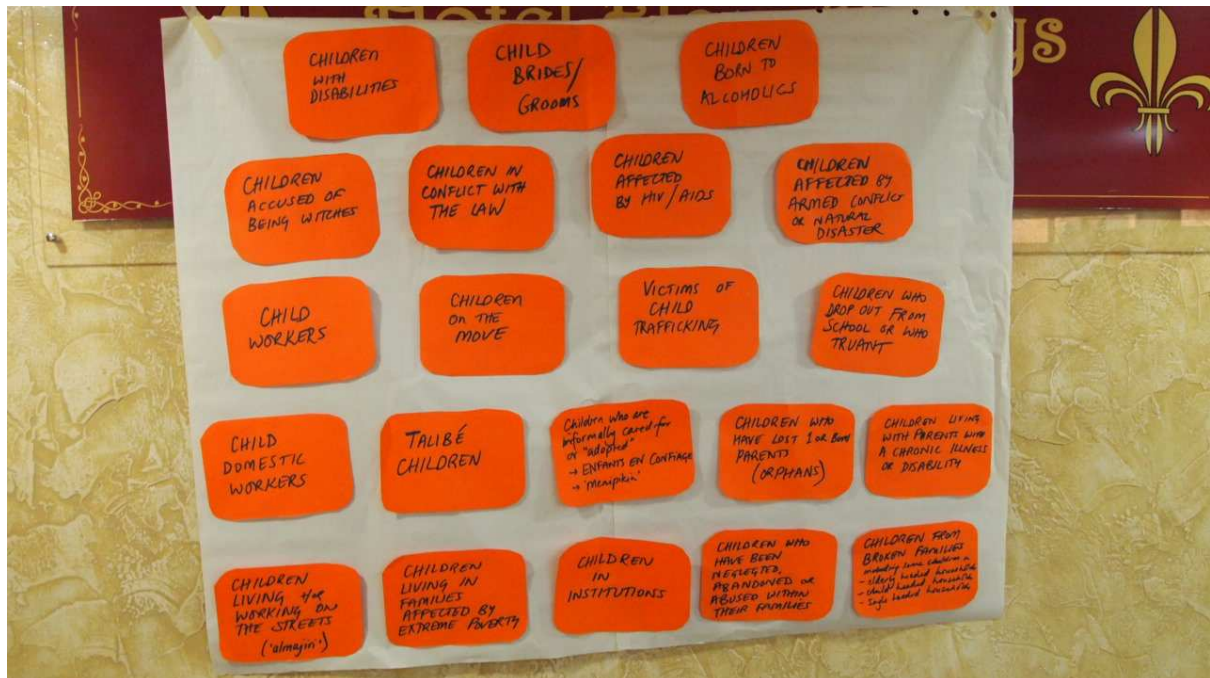 Hotel
ys
CHILDREN
WITH
DISABILITIES
CHILD
BRIDES/
GROOMS
CHILDREN
BORN TO
ALCOHOLICS
CHILDREN
ACCUSED OF
BEING WITCHES
CHILDREN IN
CONFLICT WITH
THE LAW
CHILDREN
AFFECTED
BY HIV/AIDS
CHILDREN
AFFECTED BY
ARMED CONFLICT
OR NATURAL
DISASTER
CHILD
WORKERS
CHILDREN
ON THE
MOVE
VICTIMS OF
CHILD
TRAFFICKING
CHILDREN WHO
DROP OUT FROM
SCHOOL OR WHO
TRUANT
CHILD
DOMESTIC
WORKERS
TALIBÉ
CHILDREN
Children who are
informally cared for
or "adopted"
→ ENFANTS EN CONFIAGE
→ 'menpikin'
CHILDREN WHO
HAVE LOST 1 OR BOTH
PARENTS
(ORPHANS)
CHILDREN LIVING
WITH PARENTS WITH
A CHRONIC ILLNESS
OR DISABILITY
CHILDREN
LIVING +/or
WORKING ON
THE STREETS
('almajiri')
CHILDREN
LIVING IN
FAMILIES
AFFECTED BY
EXTREME POVERTY
CHILDREN
IN
INSTITUTIONS
CHILDREN WHO
HAVE BEEN
NEGLECTED,
ABANDONED OR
ABUSED WITHIN
THEIR FAMILIES
CHILDREN FROM
BROKEN FAMILIES
including children in
- elderly headed households
- child headed households
- single headed households